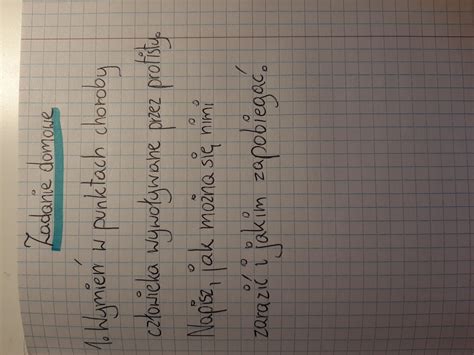 Zadanie domowe
1. Wymień w punktach choroby
człowieka wywoływane przez protisty.
Napisz, jak można się nimi
zarazić i jakim zapobiegać.